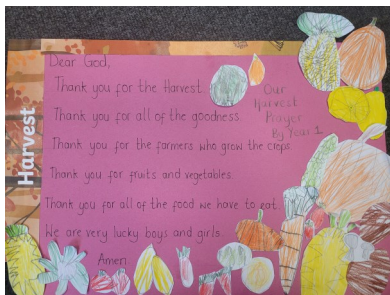 Dear God,
Thank you for the Harvest.
Thank you for all of the goodness.
Thank you for the farmers who grow the crops
Thank you for fruits and vegetables.
Thank you for all of the food we have to eat.
We are very lucky boys and girls.
Amen.
Our
Harvest
Prayer
By Year 1
Harvest